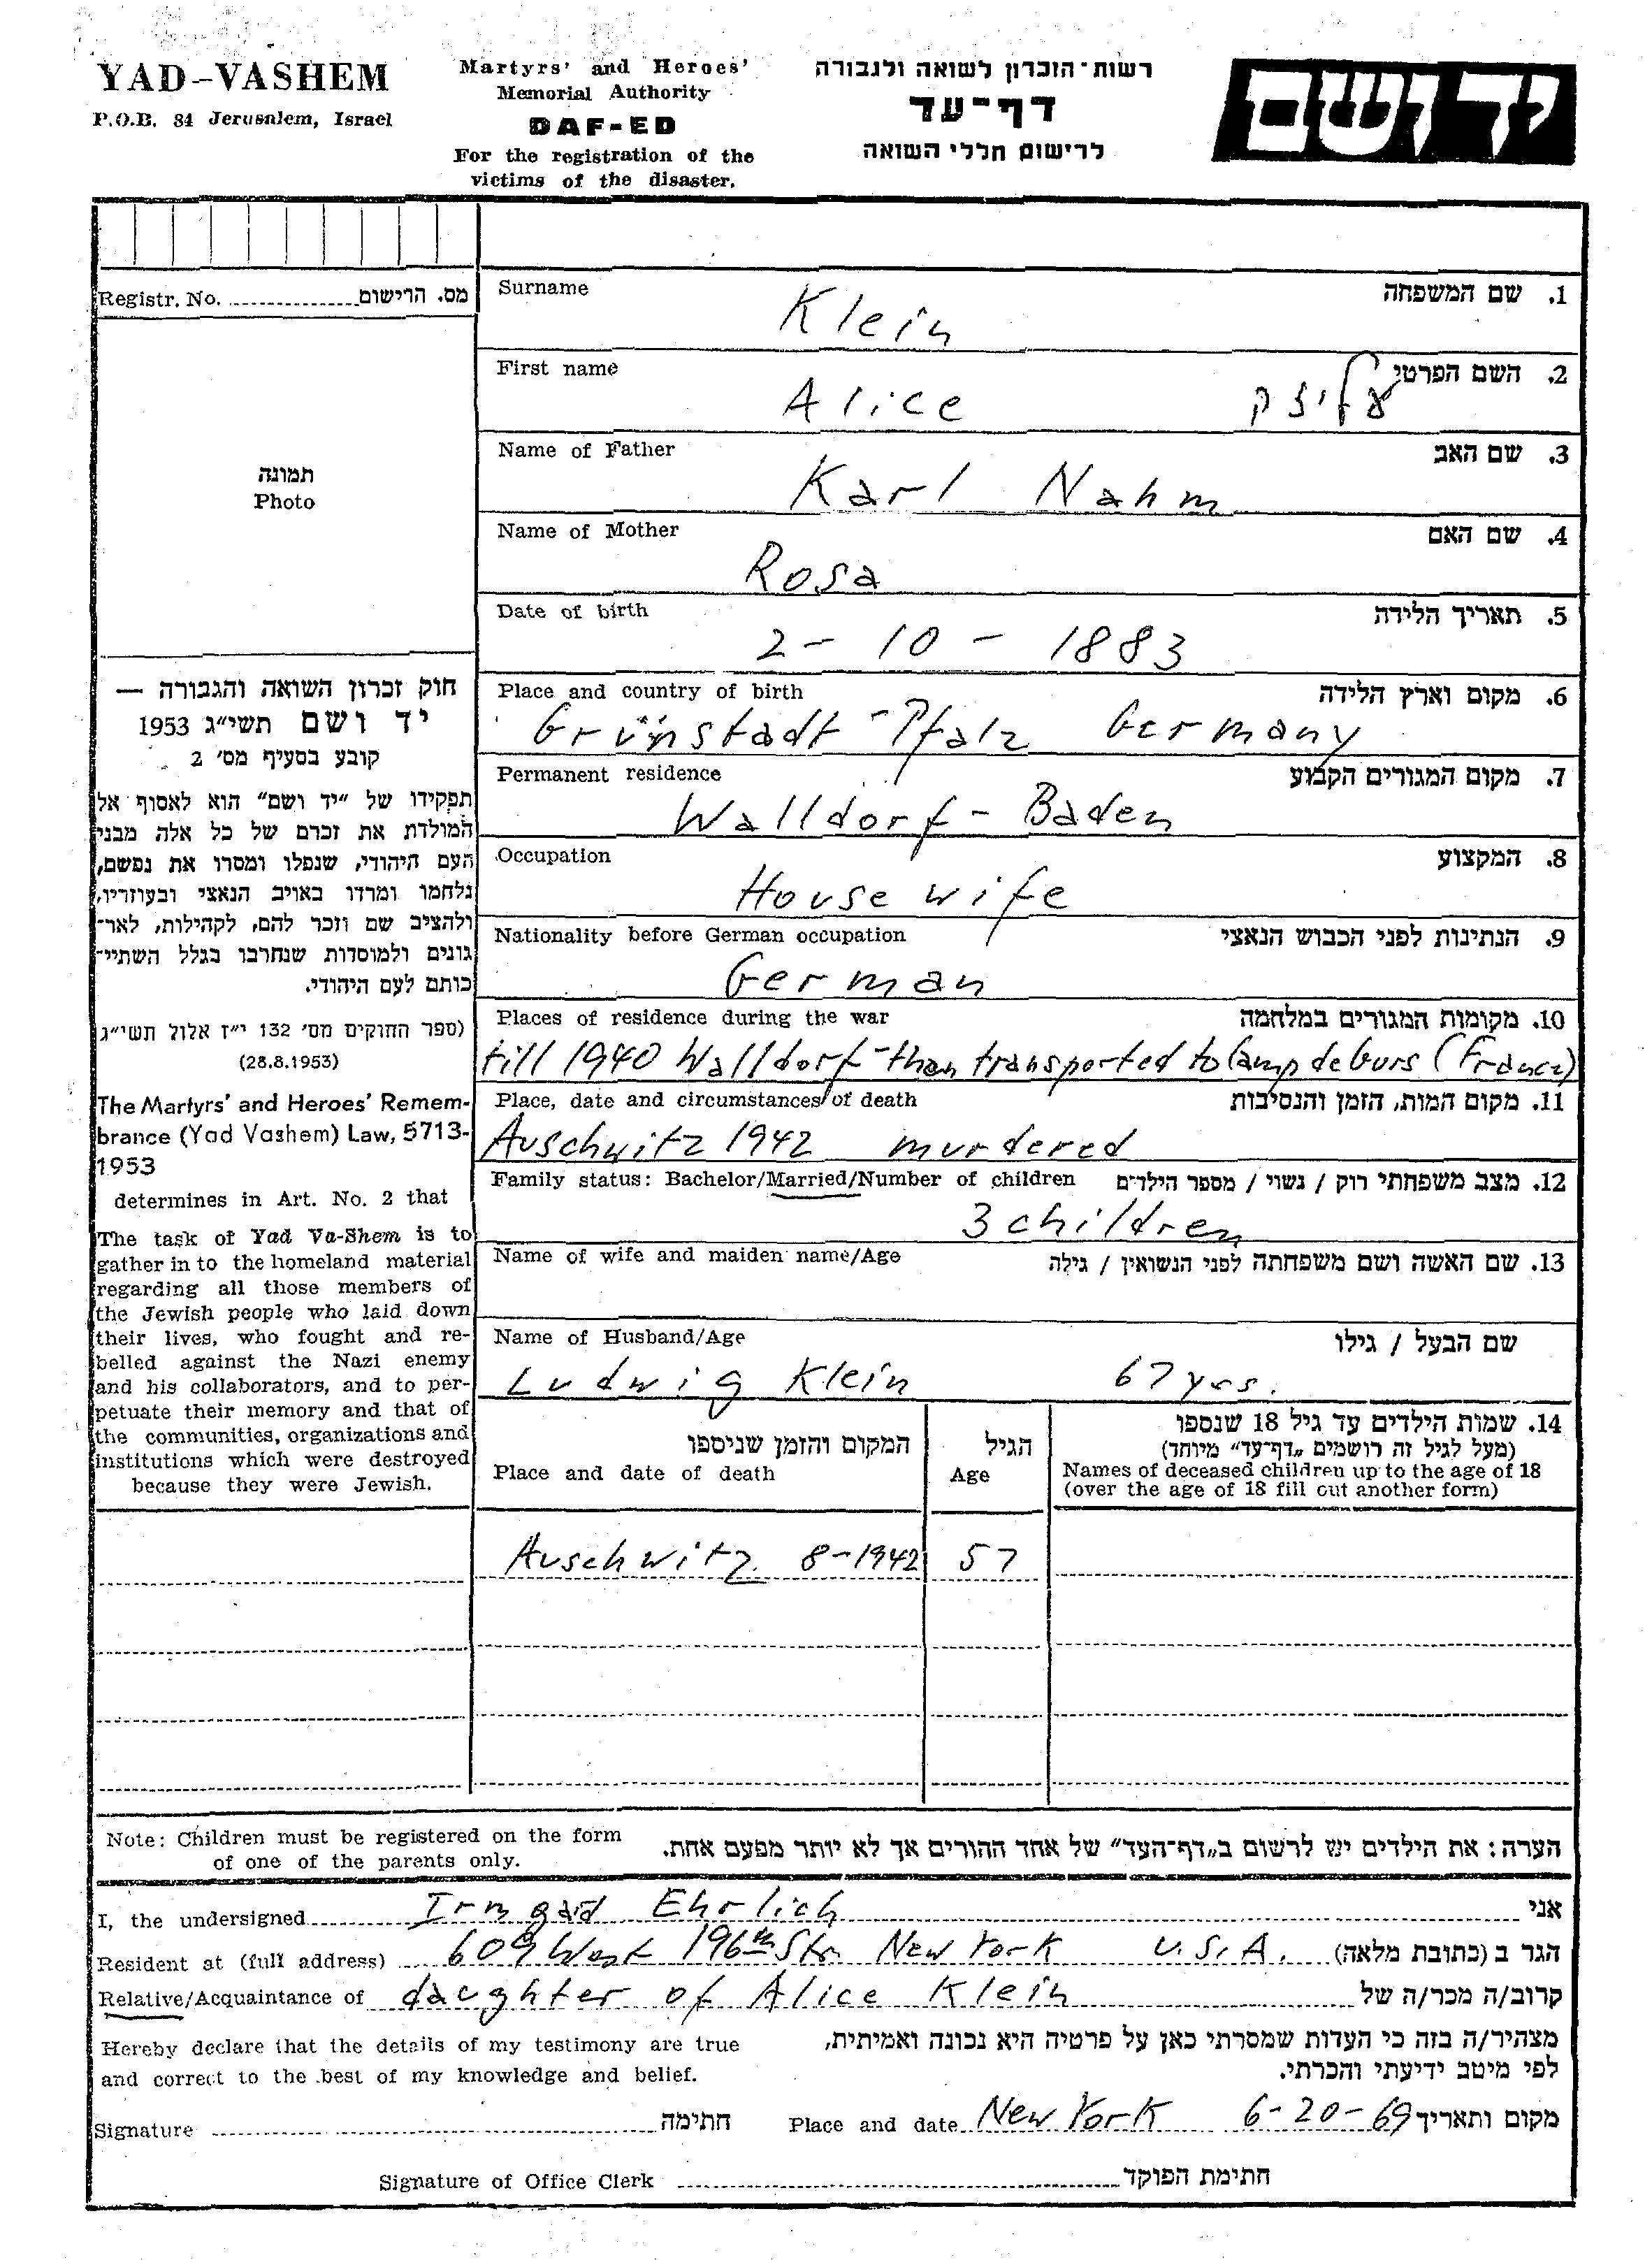 YAD-VASHEM
P.O.B. 84 Jerusalem, Israel
Martyrs' and Heroes'
Memorial Authority
DAF-ED
For the registration of the
victims of the disaster.
רשות-הזכרון לשואה ולגבורה
דף-עד
לרישום חללי השואה
יד ושם
Registr. No. מס. הרישום
תמונה
Photo
חוק זכרון השואה והגבורה —
יד ושם תשי״ג 1953
קובע בסעיף מס׳ 2
תפקידו של ״יד ושם״ הוא לאסוף אל
המולדת את זכרם של כל אלה מבני
העם היהודי, שנפלו ומסרו את נפשם,
נלחמו ומרדו באויב הנאצי ובעוזריו,
ולהציב שם וזכר להם, לקהילות, לאר־
גונים ולמוסדות שנחרבו בגלל השתיי־
כותם לעם היהודי.
(ספר החוקים מס׳ 132 י״ז אלול תשי״ג
(28.8.1953)
The Martyrs' and Heroes' Remem-
brance (Yad Vashem) Law, 5713-
1953
determines in Art. No. 2 that
The task of Yad Va-Shem is to
gather in to the homeland material
regarding all those members of
the Jewish people who laid down
their lives, who fought and re-
belled against the Nazi enemy
and his collaborators, and to per-
petuate their memory and that of
the communities, organizations and
institutions which were destroyed
because they were Jewish.
Surname 1. שם המשפחה
Klein
First name 2. השם הפרטי
Alice
Name of Father 3. שם האב
Karl Nahm
Name of Mother 4. שם האם
Rosa
Date of birth 5. תאריך הלידה
2 - 10 - 1883
Place and country of birth 6. מקום וארץ הלידה
Grünstadt - Pfalz Germany
Permanent residence 7. מקום המגורים הקבוע
Walldorf - Baden
Occupation 8. המקצוע
House wife
Nationality before German occupation 9. הנתינות לפני הכבוש הנאצי
German
Places of residence during the war 10. מקומות המגורים במלחמה
till 1940 Walldorf - than transported to Camp de Gurs (France)
Place, date and circumstances of death 11. מקום המות, הזמן והנסיבות
Auschwitz 1942 murdered
Family status: Bachelor/Married/Number of children 12. מצב משפחתי רוק / נשוי / מספר הילדים
3 children
Name of wife and maiden name/Age 13. שם האשה ושם משפחתה לפני הנשואין / גילה
Name of Husband/Age שם הבעל / גילו
Ludwig Klein 67 yrs.
המקום והזמן שניספו
Place and date of death
הגיל
Age
14. שמות הילדים עד גיל 18 שנספו
(מעל לגיל זה רושמים „דף־עד״ מיוחד)
Names of deceased children up to the age of 18
(over the age of 18 fill out another form)
Auschwitz 8-1942 57
Note: Children must be registered on the form
of one of the parents only.
הערה: את הילדים יש לרשום ב„דף־העד״ של אחד ההורים אך לא יותר מפעם אחת.
I, the undersigned Irmgard Ehrlich אני
Resident at (full address) 609 West 196th Str. New York U.S.A. הגר ב (כתובת מלאה)
Relative/Acquaintance of daughter of Alice Klein קרוב/ה מכר/ה של
Hereby declare that the details of my testimony are true
and correct to the best of my knowledge and belief.
מצהיר/ה בזה כי העדות שמסרתי כאן על פרטיה היא נכונה ואמיתית,
לפי מיטב ידיעתי והכרתי.
Signature חתימה Place and date New York 6-20-69 מקום ותאריך
Signature of Office Clerk חתימת הפוקד